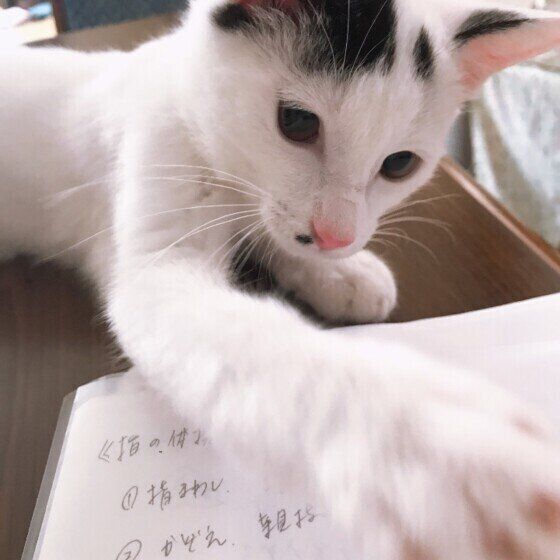 《指の体
①指まわし
② かぞえ. 親指